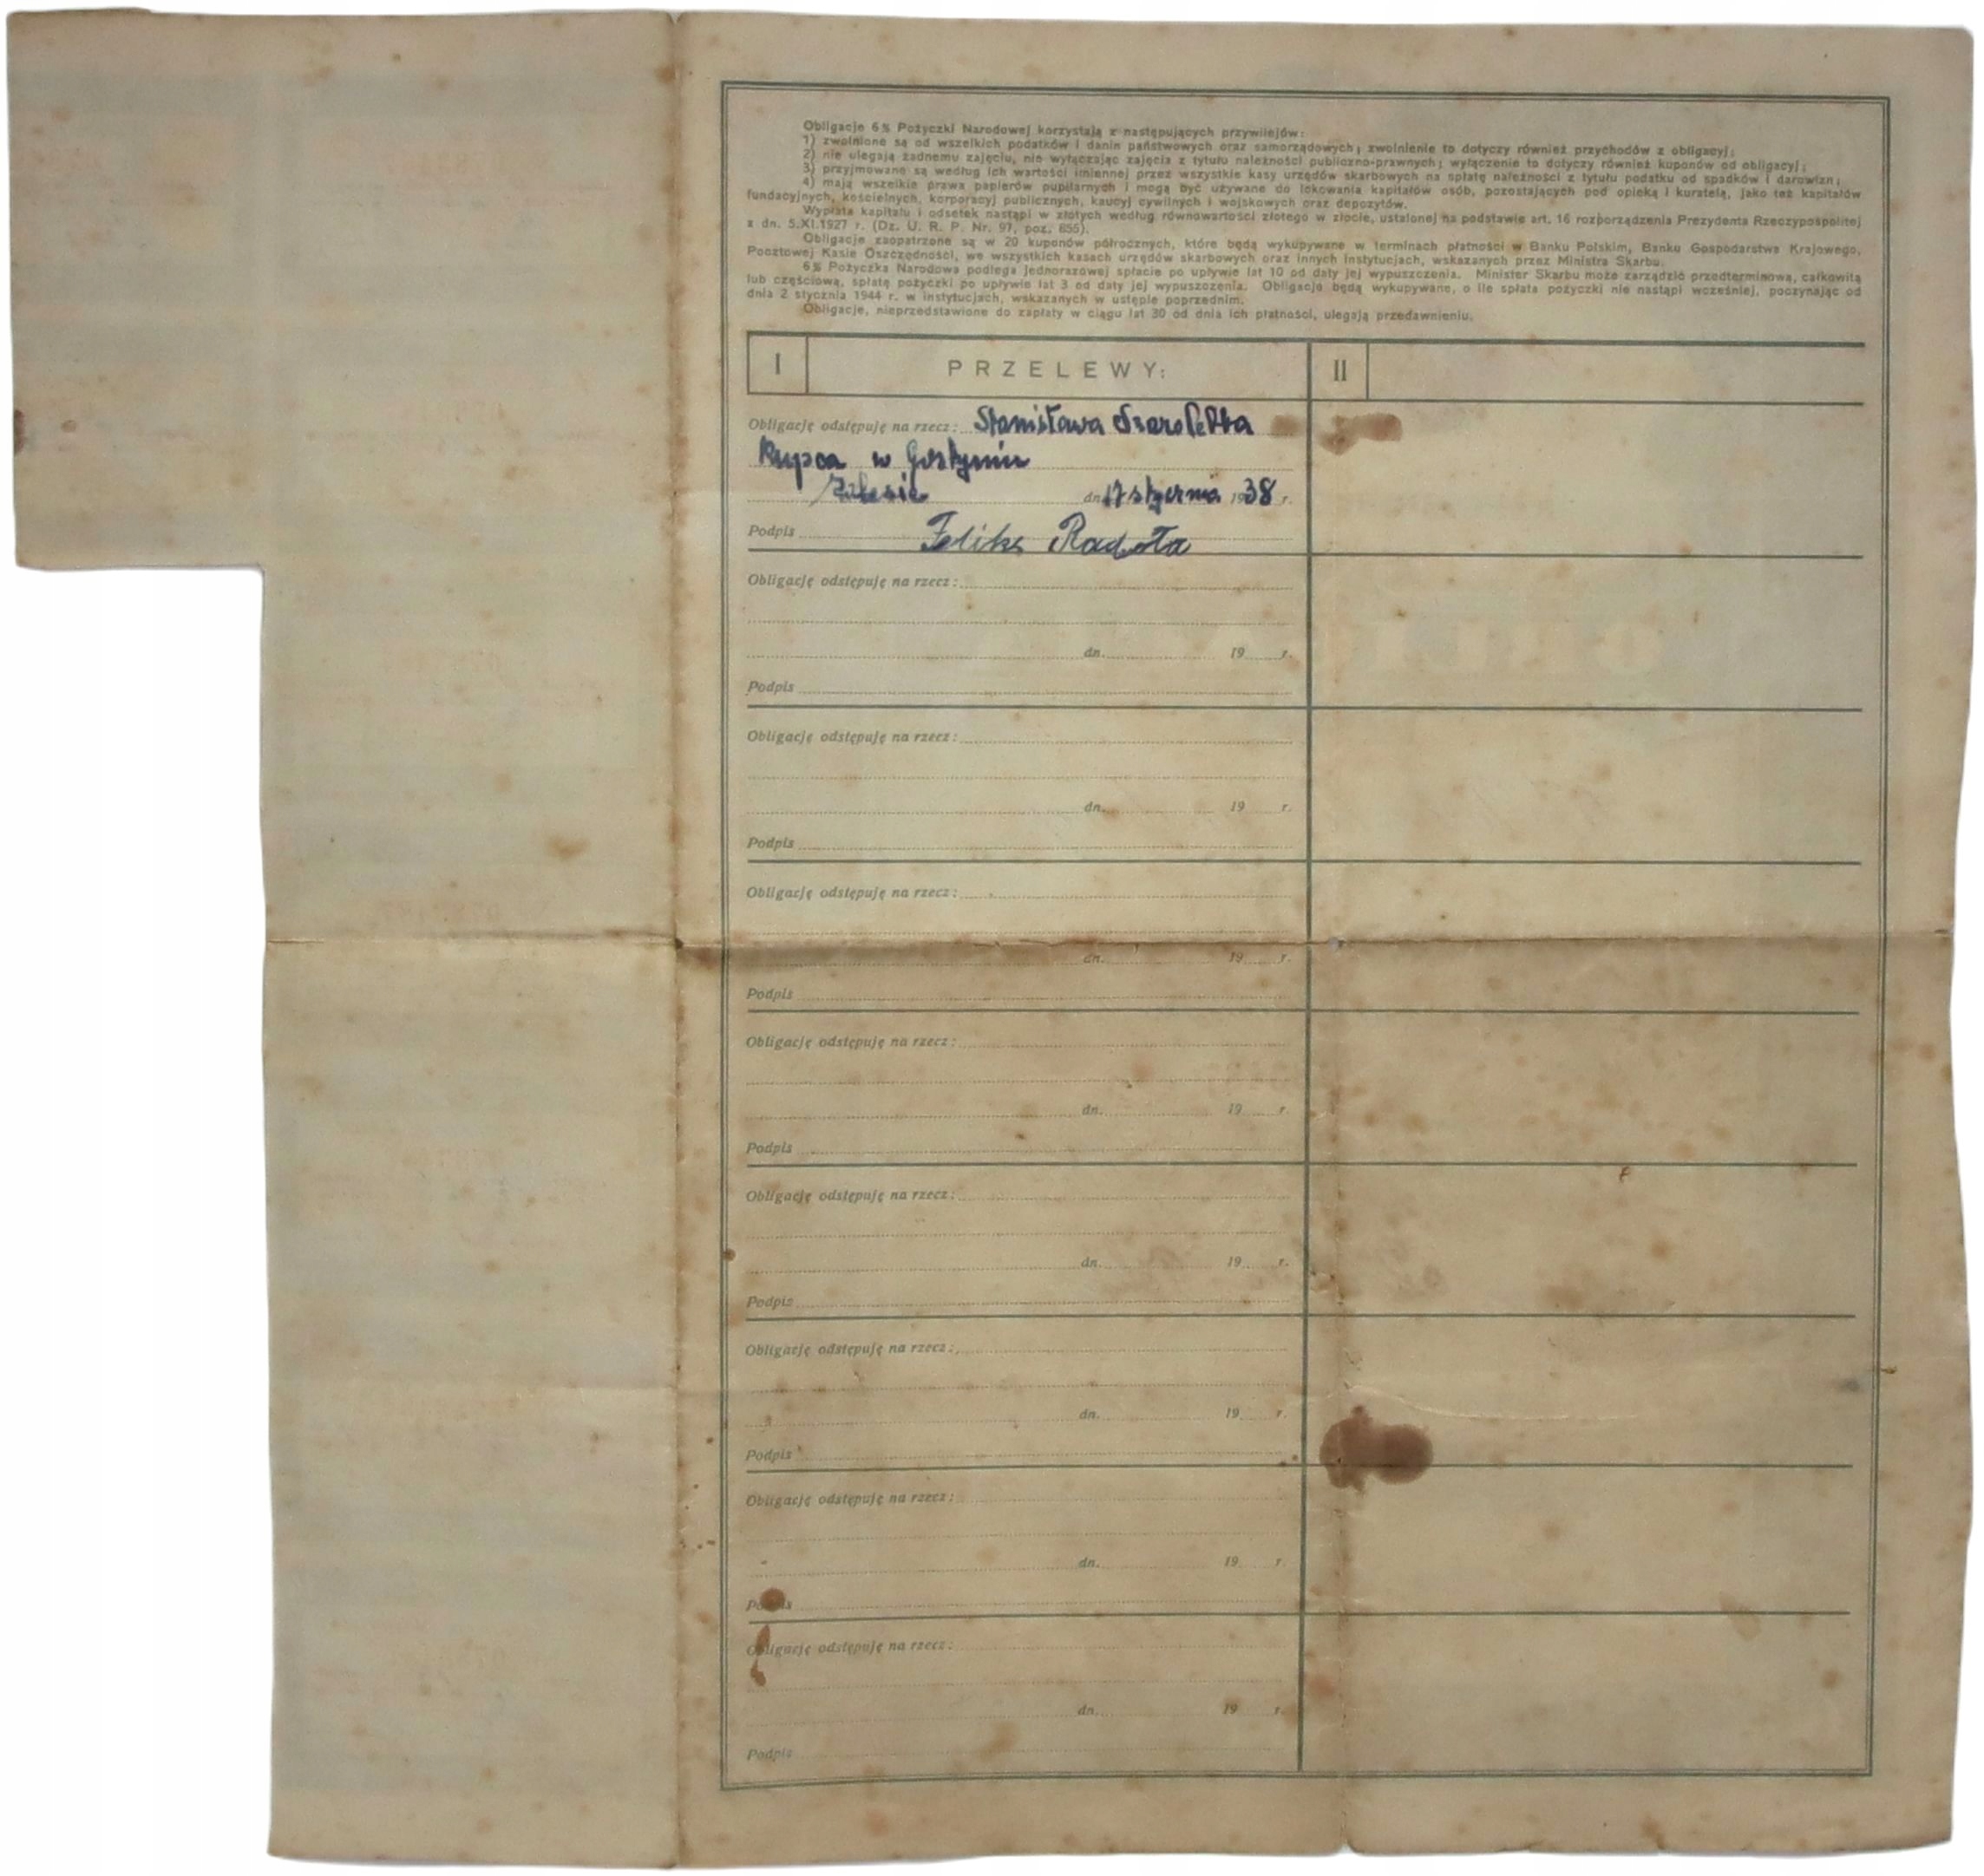 Obligacje 6% Pożyczki Narodowej korzystają z następujących przywilejów:
1) zwolnione są od wszelkich podatków i danin państwowych oraz samorządowych; zwolnienie to dotyczy również przychodów z obligacyj;
2) nie ulegają żadnemu zajęciu, nie wyłączając zajęcia z tytułu należności publiczno-prawnych; wyłączenie to dotyczy również kuponów od obligacyj;
3) przyjmowane są według ich wartości imiennej przez wszystkie kasy urzędów skarbowych na spłatę należności z tytułu podatku od spadków i darowizn;
4) mają wszelkie prawa papierów pupilarnych i mogą być używane do lokowania kapitałów osób, pozostających pod opieką i kuratelą, jako też kapitałów
fundacyjnych, kościelnych, korporacyj publicznych, kaucyj cywilnych i wojskowych oraz depozytów.
Wypłata kapitału i odsetek nastąpi w złotych według równowartości złotego w złocie, ustalonej na podstawie art. 16 rozporządzenia Prezydenta Rzeczypospolitej
z dn. 5.XI.1927 r. (Dz. U. R. P. Nr. 97, poz. 855).
Obligacje zaopatrzone są w 20 kuponów półrocznych, które będą wykupywane w terminach płatności w Banku Polskim, Banku Gospodarstwa Krajowego,
Pocztowej Kasie Oszczędności, we wszystkich kasach urzędów skarbowych oraz innych instytucjach, wskazanych przez Ministra Skarbu.
6% Pożyczka Narodowa podlega jednorazowej spłacie po upływie lat 10 od daty jej wypuszczenia. Minister Skarbu może zarządzić przedterminową, całkowitą
lub częściową, spłatę pożyczki po upływie lat 3 od daty jej wypuszczenia. Obligacje będą wykupywane, o ile spłata pożyczki nie nastąpi wcześniej, począwszy od
dnia 2 stycznia 1944 r. w instytucjach, wskazanych w ustępie poprzednim.
Obligacje, nieprzedstawione do zapłaty w ciągu lat 30 od dnia ich płatności, ulegają przedawnieniu.
I PRZELEWY: II
Obligację odstępuję na rzecz: Stanisława
Kupca w Gostyniu
Zalesie dn. 17 stycznia 1938 r.
Podpis Feliks Radoła
Obligację odstępuję na rzecz:
dn. 19 r.
Podpis
Obligację odstępuję na rzecz:
dn. 19 r.
Podpis
Obligację odstępuję na rzecz:
dn. 19 r.
Podpis
Obligację odstępuję na rzecz:
dn. 19 r.
Podpis
Obligację odstępuję na rzecz:
dn. 19 r.
Podpis
Obligację odstępuję na rzecz:
dn. 19 r.
Podpis
Obligację odstępuję na rzecz:
dn. 19 r.
Podpis
Obligację odstępuję na rzecz:
dn. 19 r.
Podpis